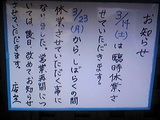 お知らせ
3/14(土)は臨時休業さ
せていただきます。
3/23(月)から、しばらくの間
休業させていただく事に
なりました。営業再開につ
いては、後日、改めてお知らせ
させていただきます。
店主